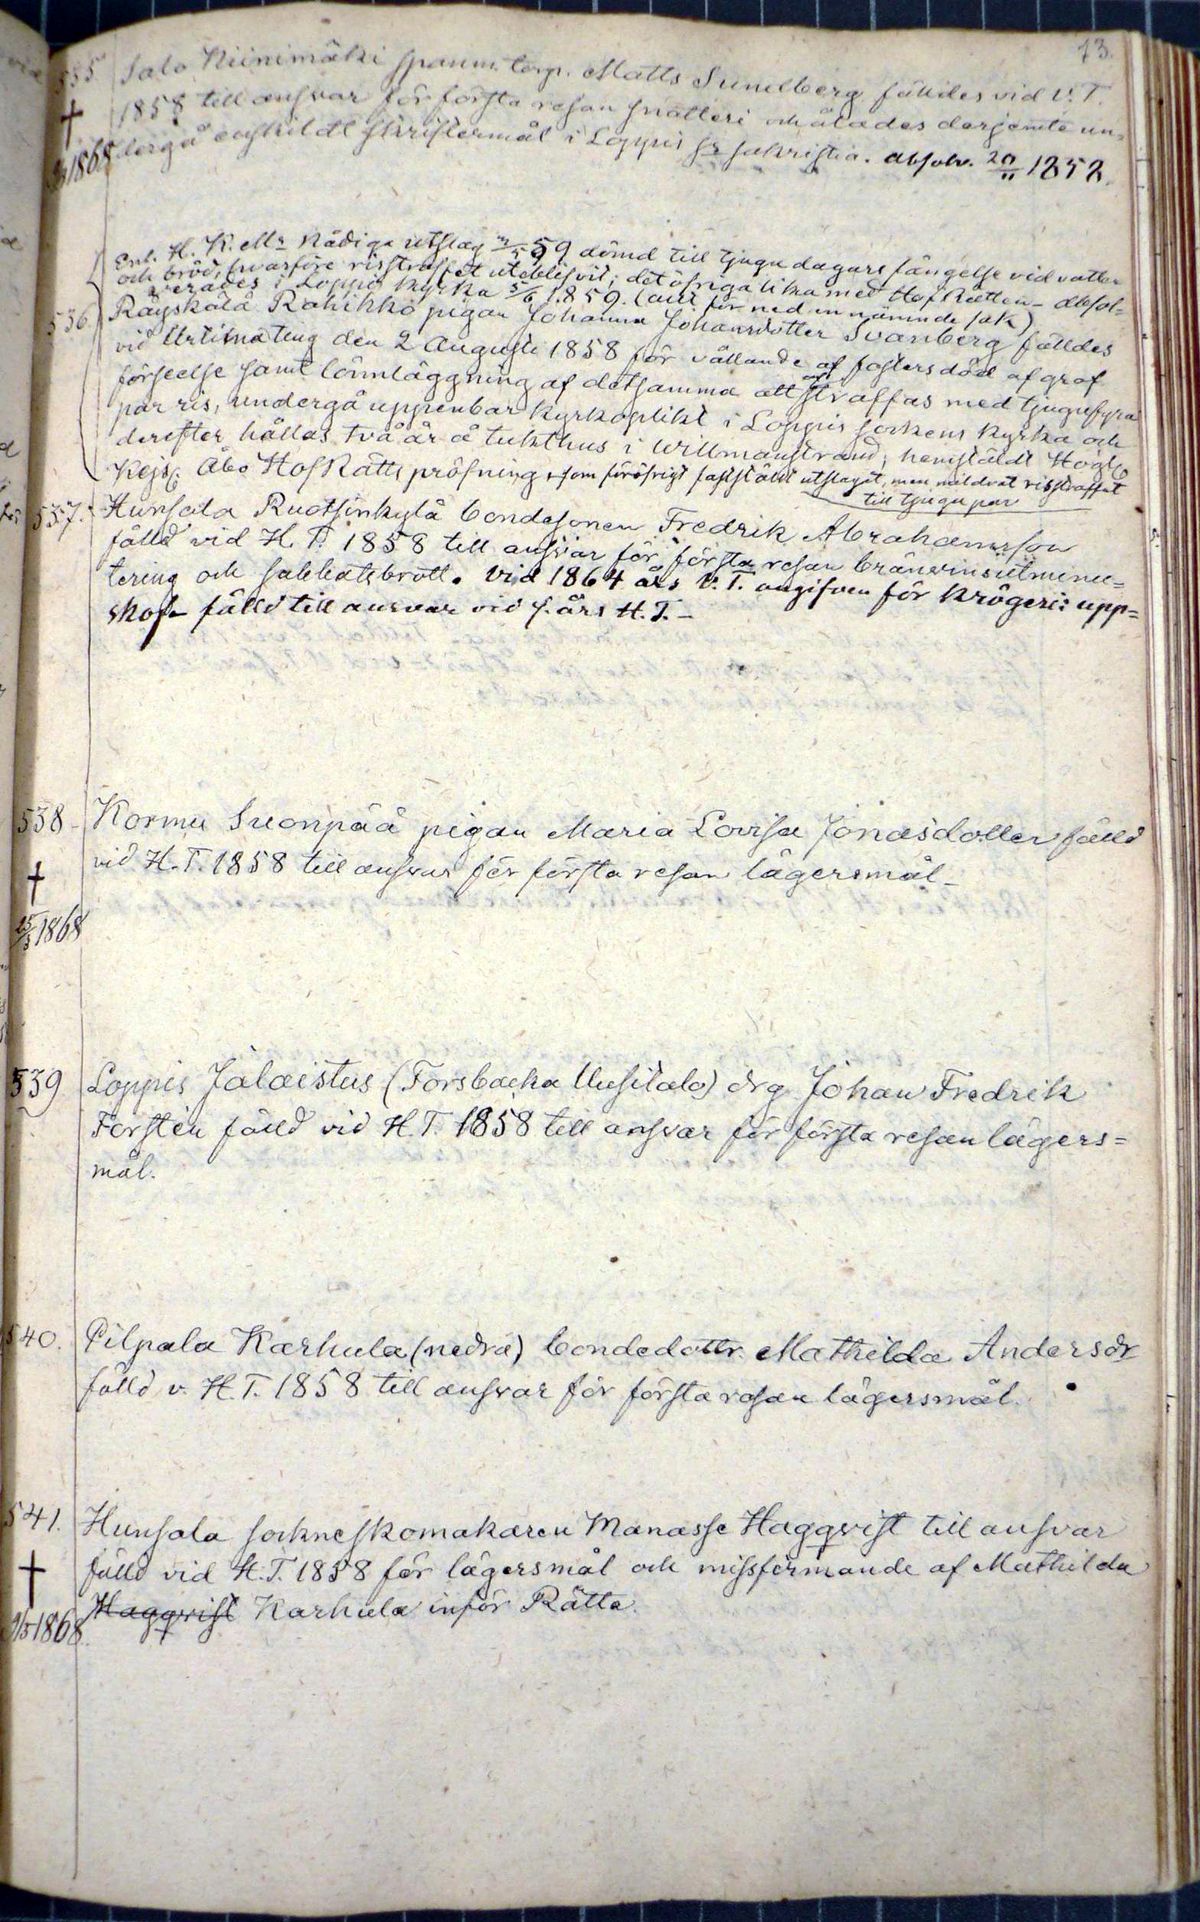 73.
535 Salo Niinimäki spanm. torp. Matts Sundberg fälldes vid V. T.
1858 till answar för första resan snatteri och ålades derjemte un=
dergå enskildt skriftermål i Loppis ks sakristia. absolv. 20/11 1858.
† 1868
Enl. H. K. Ms Nådiga utslag 59 dömd till tjugu dagars fängelse vid vatten
och bröd, hvarföre risstraffet uteblifvit; det öfriga lika med Hof Rätten - absol=
verades i Loppis kyrka 5/6 1859. (allt för ned. nämnde sak)
536. Räyskälä Rahihkö pigan Johanna Johansdotter Svanberg fälldes
vid Urtima ting den 2 Augusti 1858 för vållande af fosters död af grof
förseelse samt lönnläggning af detsamma att straffas med tjugufyra
par ris, undergå uppenbar kyrkoplikt i Loppis sockens kyrka och
derefter hållas två år å tukthus i Willmanstrand; hemstäldt Högl.
Kejs. Åbo HofRätts pröfning, som föröfrigt fastställt utslaget, men mildrat risstraffet
till tjugu par
537. Hunsala Ruotsinkylä bondesonen Fredrik Abrahamsson
fälld vid H. T. 1858 till answar för första resan bränvinsutminu=
tering och sabbatsbrott. Vid 1864 års V. T. angifven för krögeri: upp=
skof - fälld till ansvar vid s. års H. T. -
538 Kormu Suonpää pigan Maria Lovisa Jonasdotter fälld
vid H. T. 1858 till answar för första resan lägersmål -
† 25/5 1868
539 Loppis Jälaistus (Forsbacka Uusitalo) drg Johan Fredrik
Forstén fälld vid H. T. 1858 till answar för första resan lägers=
mål.
540. Pilpala Karhula (nedra) bondedottr. Mathilda Andersdr
fälld v. H. T. 1858 till answar för första resan lägersmål.
541. Hunsala sockneskomakaren Manasse Hagqvist till answar
fälld vid H. T. 1858 för lägersmål och missfirmande af Mathilda
Hagqvist Karhula inför Rätta.
† 1868.